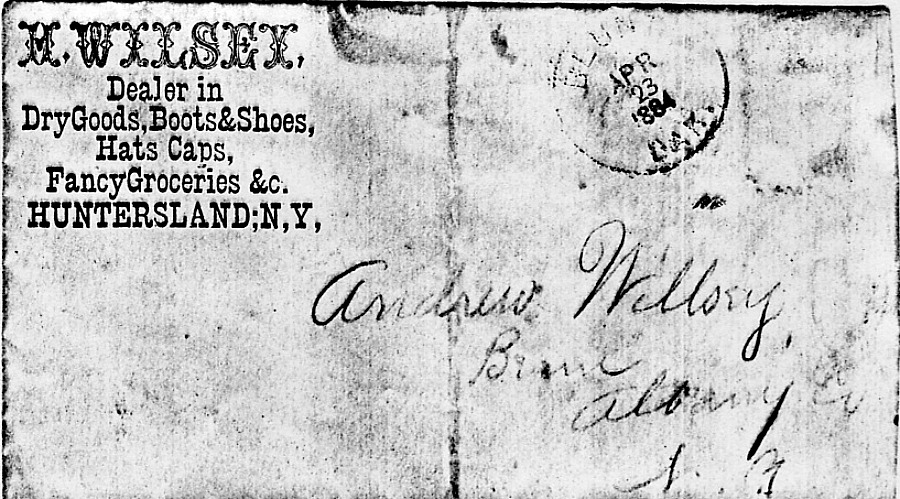 H. WILSEY,
Dealer in
DryGoods,Boots&Shoes,
Hats Caps,
FancyGroceries &c.
HUNTERSLAND;N,Y,
BLUN
APR
23
1884
DAK.
Andrew Willsey,
Albany Co
N. Y